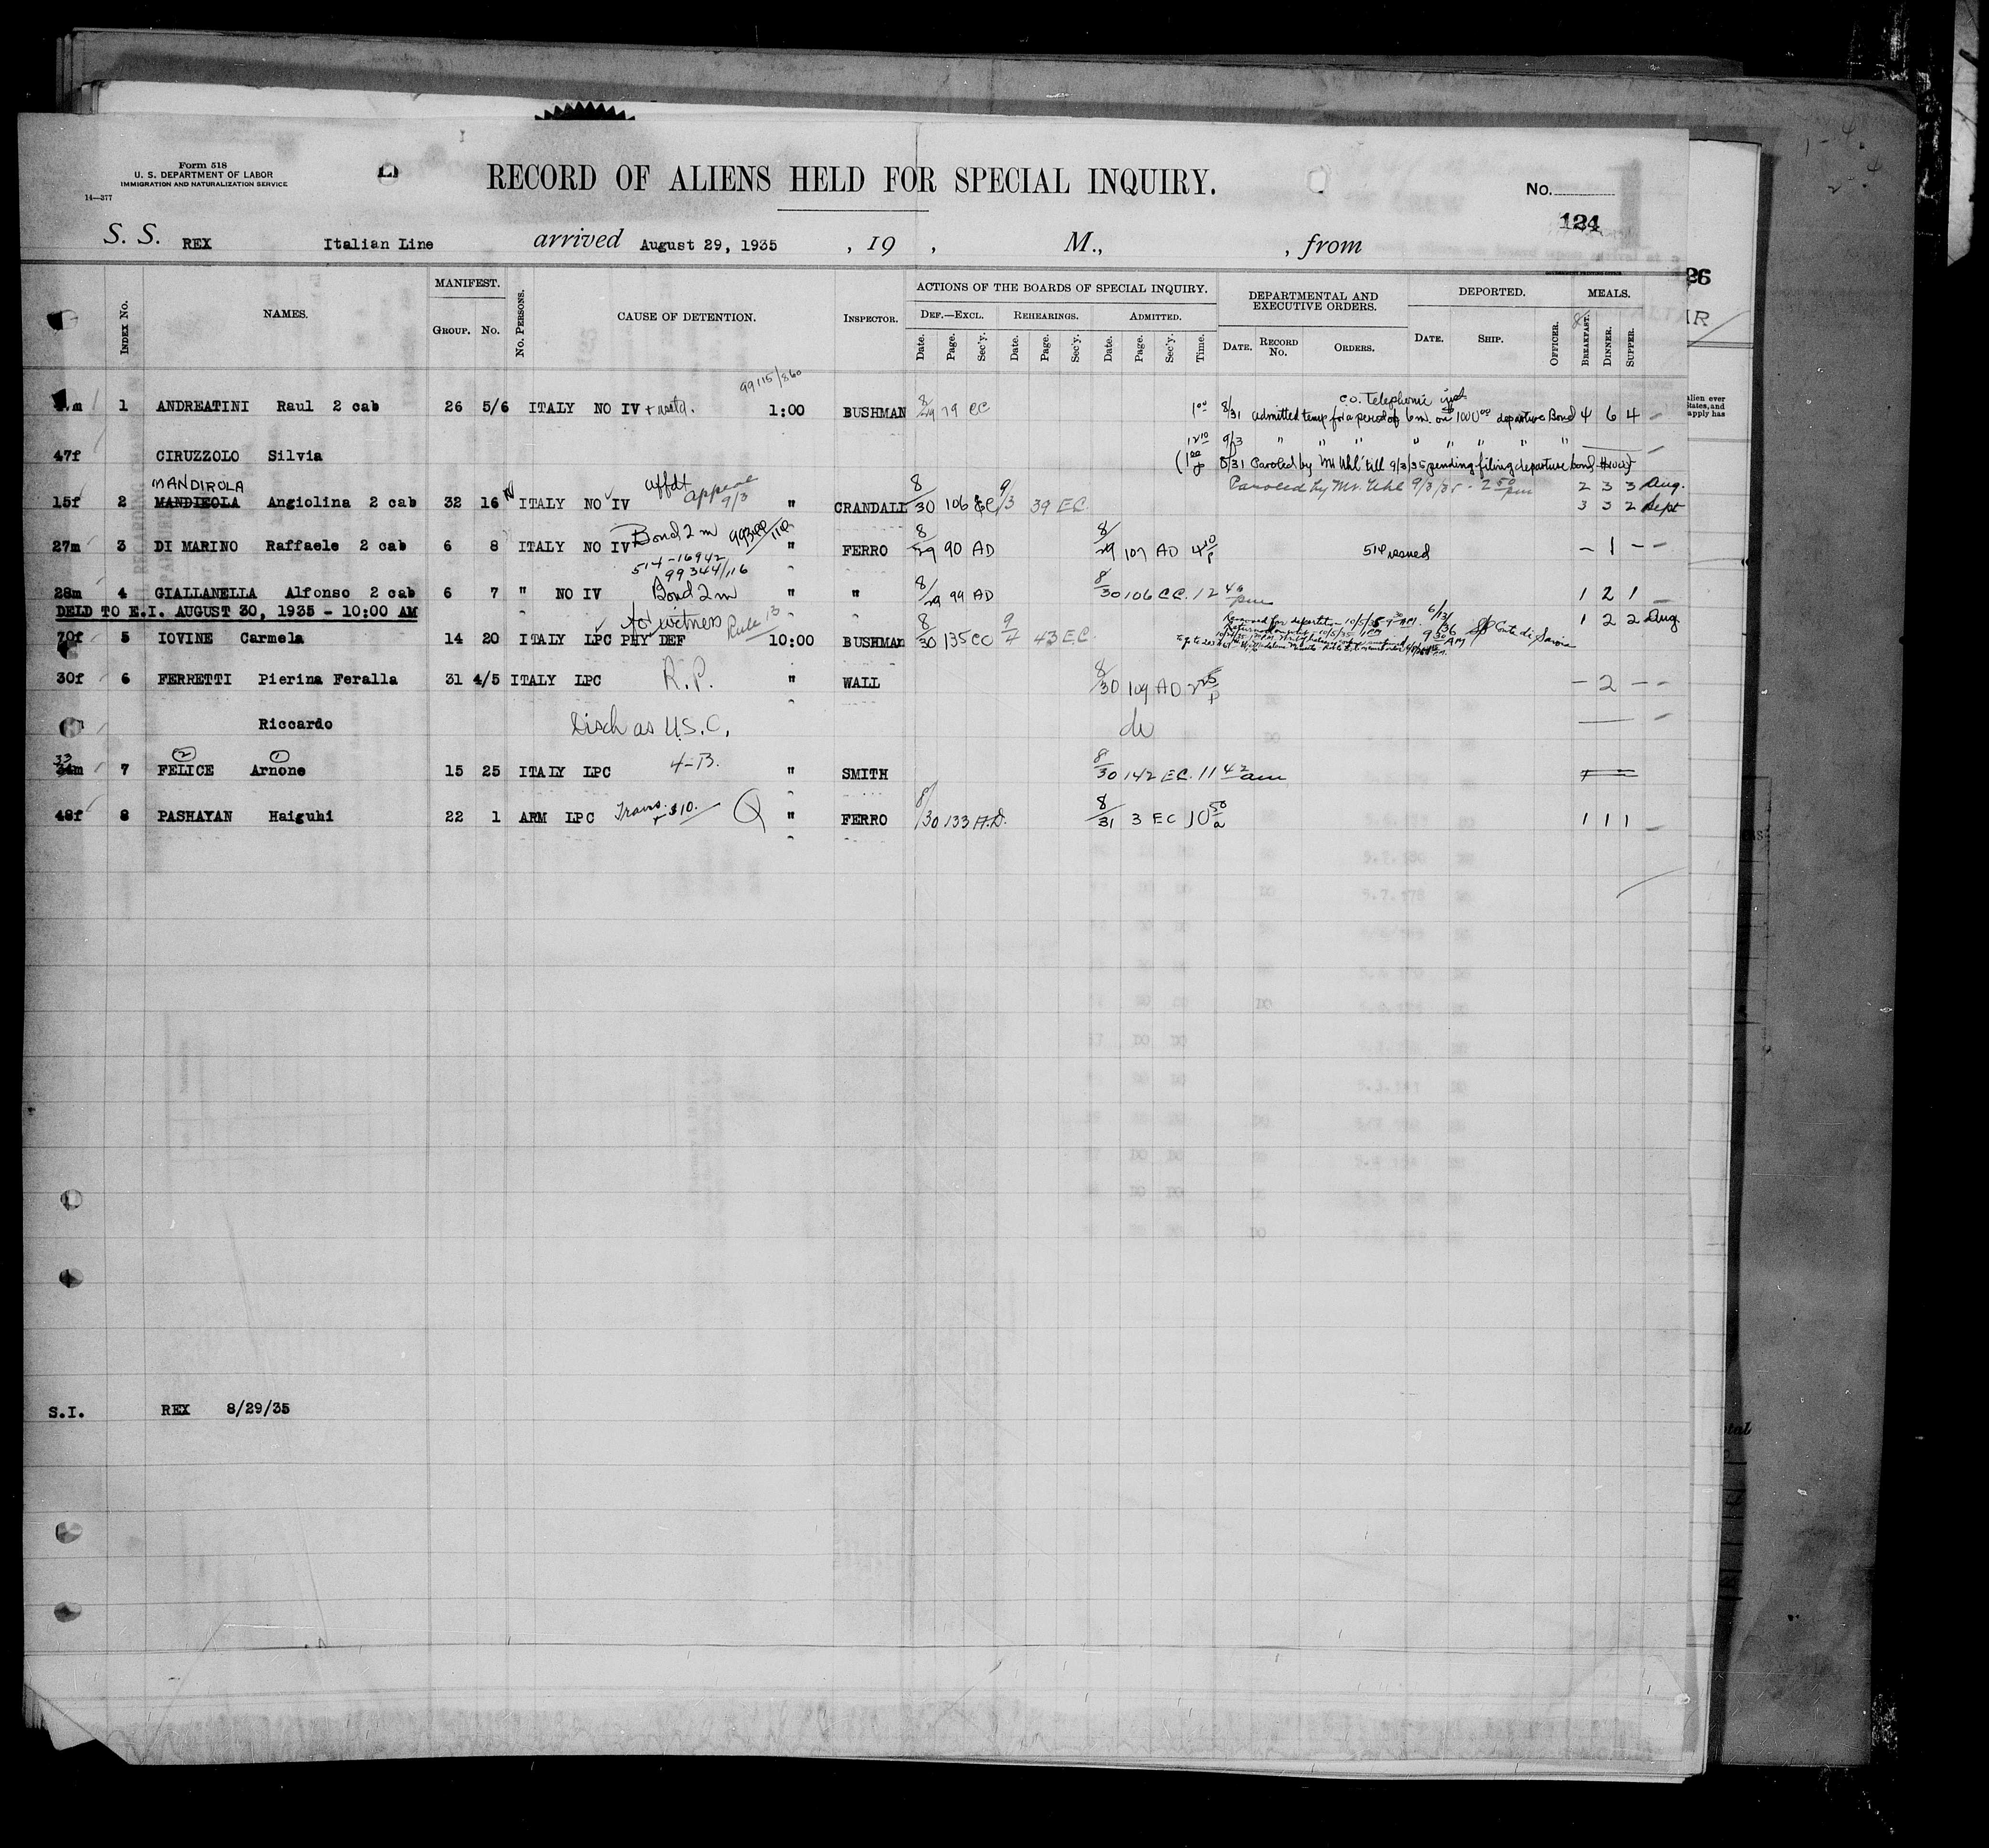 Form 518
U. S. DEPARTMENT OF LABOR
IMMIGRATION AND NATURALIZATION SERVICE
14—377
RECORD OF ALIENS HELD FOR SPECIAL INQUIRY.
No.
124
S. S. REX Italian Line arrived August 29, 1935 , 19 , M., , from
Index No. NAMES. MANIFEST. Group. No. No. Persons. CAUSE OF DETENTION. Inspector. ACTIONS OF THE BOARDS OF SPECIAL INQUIRY. DEPARTMENTAL AND EXECUTIVE ORDERS. DEPORTED. MEALS.
Def.—Excl. Rehearings. Admitted.
Date. Page. Sec'y. Date. Page. Sec'y. Date. Page. Sec'y. Time. Date. Record No. Orders. Date. Ship. Officer. Breakfast. Dinner. Supper.
99115/860
co. Telephonic
m 1 ANDREATINI Raul 2 cab 26 5/6 ITALY NO IV 1:00 BUSHMAN 8/29 79 CC 1 00 8/31 admitted temp for a period of 6 m. on 1000 00 departure Bond 4 6 4
12 10 9/3 " " " " " " "
47f CIRUZZOLO Silvia (1 00 8/31 Paroled by Mr Uhl till 9/3/35 pending filing departure bond
MANDIROLA affdt appeal 9/3 Paroled by Mr. Uhl 9/3/35 - 2 50 pm 2 3 3 Aug.
15f 2 MANDIEOLA Angiolina 2 cab 32 16 ITALY NO IV " CRANDALL 8/30 106 EC 9/3 39 EC 3 3 2 Sept
27m 3 DI MARINO Raffaele 2 cab 6 8 ITALY NO IV Bond 2 m " FERRO 8/29 90 AD 8/29 107 AD 4 10 p 514 issued — 1 — —
514-16942
99344/116
28m 4 GIALLANELLA Alfonso 2 cab 6 7 " NO IV Bond 2 m " " 8/29 99 AD 8/30 106 CC. 12 46 pm 1 2 1 —
DELD TO E.I. AUGUST 30, 1935 - 10:00 AM
witness Rule 13
70f 5 IOVINE Carmela 14 20 ITALY LPC PHY DEF 10:00 BUSHMAN 8/30 135 CC 9/7 43 E.C. 9 30 AM SS Conte di Savoia 1 2 2 Aug.
30f 6 FERRETTI Pierina Feralla 31 4/5 ITALY LPC R.P. " WALL 8/30 109 AD 2 25 p — 2 — —
Riccardo Disch as U.S.C. do
33
34m 7 FELICE (2) Arnone (1) 15 25 ITALY LPC 4-B. " SMITH 8/30 142 E.C. 11 42 am
48f 8 PASHAYAN Haiguhi 22 1 ARM LPC Trans. + $10. Q " FERRO 8/30 133 A.D. 8/31 3 EC 10 50 a 1 1 1
S.I. REX 8/29/35